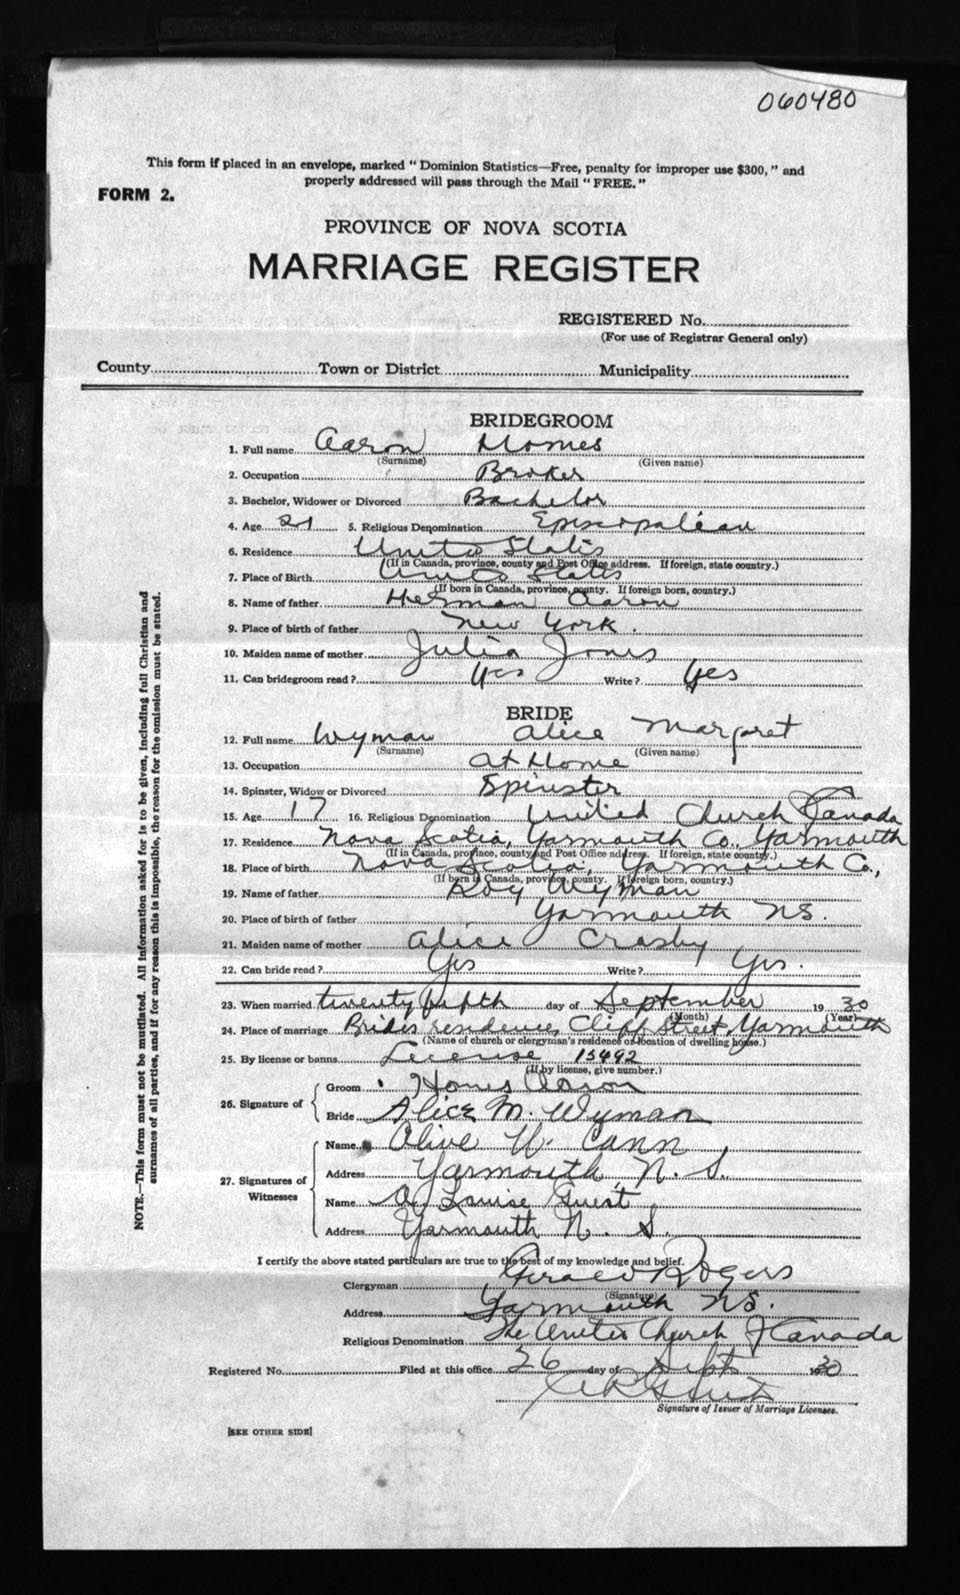 060480
This form if placed in an envelope, marked "Dominion Statistics—Free, penalty for improper use $300," and
properly addressed will pass through the Mail "FREE."
FORM 2.
PROVINCE OF NOVA SCOTIA
MARRIAGE REGISTER
REGISTERED No.
(For use of Registrar General only)
County Town or District Municipality
BRIDEGROOM
1. Full name Aaron Homes
(Surname) (Given name)
2. Occupation Broker
3. Bachelor, Widower or Divorced Bachelor
4. Age 21 5. Religious Denomination Episcopalian
6. Residence United States
(If in Canada, province, county and Post Office address. If foreign, state country.)
7. Place of Birth United States
(If born in Canada, province, county. If foreign born, country.)
8. Name of father Herman Aaron
9. Place of birth of father New York.
10. Maiden name of mother Julia Jones
11. Can bridegroom read? Yes Write? Yes
BRIDE
12. Full name Wyman Alice Margret
(Surname) (Given name)
13. Occupation At Home
14. Spinster, Widow or Divorced Spinster
15. Age 17 16. Religious Denomination United Church of Canada
17. Residence Nova Scotia, Yarmouth Co., Yarmouth
(If in Canada, province, county and Post Office address. If foreign, state country.)
18. Place of birth Nova Scotia, Yarmouth Co.,
(If born in Canada, province, county. If foreign born, country.)
19. Name of father Roy Wyman
20. Place of birth of father Yarmouth NS.
21. Maiden name of mother Alice Crosby
22. Can bride read? Yes Write? Yes.
23. When married twenty fifth day of September 1930
(Month) (Year)
24. Place of marriage Brides residence, Cliff Street, Yarmouth
(Name of church or clergyman's residence or location of dwelling house.)
25. By license or banns License 15492
(If by license, give number.)
26. Signature of
Groom Homes Aaron
Bride Alice M. Wyman
27. Signatures of Witnesses
Name Olive W. Cann
Address Yarmouth, N. S.
Name A. Louise Guest
Address Yarmouth N. S.
I certify the above stated particulars are true to the best of my knowledge and belief.
Clergyman Gerald Rogers
(Signature)
Address Yarmouth NS.
Religious Denomination The United Church of Canada
Registered No. Filed at this office 26 day of Sept 1930
Signature of Issuer of Marriage Licenses.
[SEE OTHER SIDE]
NOTE.—This form must not be mutilated. All information asked for is to be given, including full Christian and
surnames of all parties, and if for any reason this is impossible, the reason for the omission must be stated.